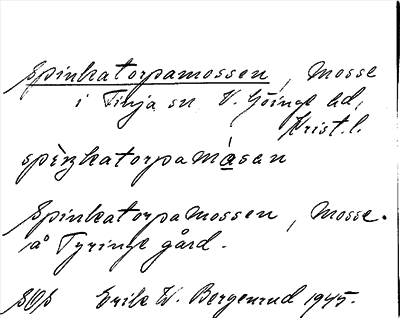 Spinkatorpamossen, Mosse
i Finja sn V. Göinge hd,
Krist. l.
spìŋkatorpamåsan
Spinkatorpamossen, Mosse.
å Tyringe gård.
Erik W. Bergenrud 1945.